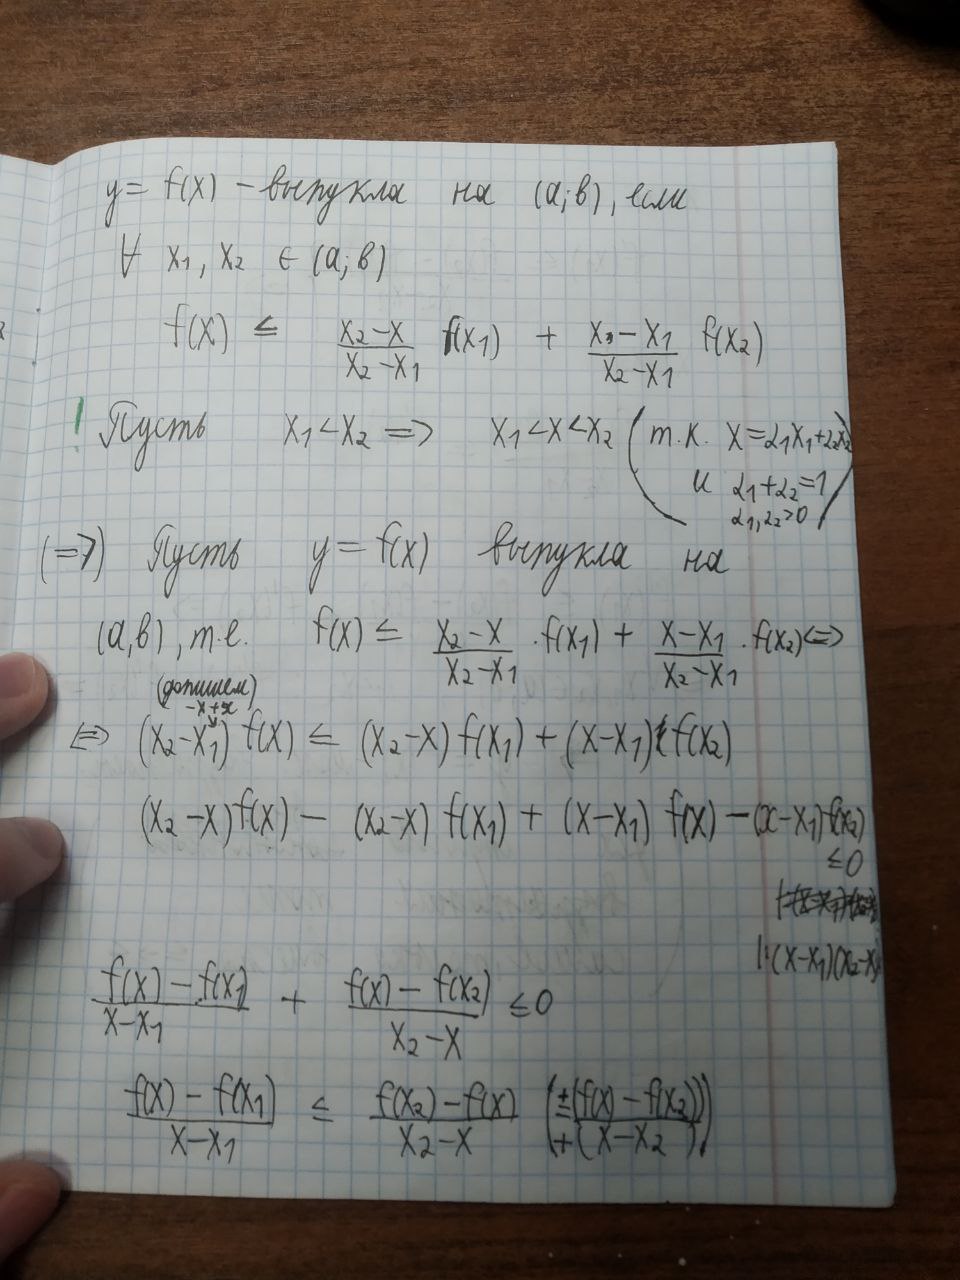 y = f(x) – выпукла на (a; b), если
∀ x₁, x₂ ∈ (a; b)
f(x) ≤ \frac{x₂ – x}{x₂ – x₁} f(x₁) + \frac{x – x₁}{x₂ – x₁} f(x₂)
! Пусть x₁ < x₂ => x₁ < x < x₂ (т.к. x = α₁x₁ + α₂x₂
и α₁ + α₂ = 1
α₁, α₂ > 0)
(=>) Пусть y = f(x) выпукла на
(a, b), т.е. f(x) ≤ \frac{x₂ – x}{x₂ – x₁} · f(x₁) + \frac{x – x₁}{x₂ – x₁} · f(x₂) <=>
(допишем)
– x + x
<=> (x₂ – x₁) f(x) ≤ (x₂ – x) f(x₁) + (x – x₁) f(x₂)
(x₂ – x) f(x) – (x₂ – x) f(x₁) + (x – x₁) f(x) – (x – x₁) f(x₂)
≤ 0
|: (x – x₁)(x₂ – x)
\frac{f(x) – f(x₁)}{x – x₁} + \frac{f(x) – f(x₂)}{x₂ – x} ≤ 0
\frac{f(x) – f(x₁)}{x – x₁} ≤ \frac{f(x₂) – f(x)}{x₂ – x} (\frac{±(f(x) – f(x₂))}{+(x – x₂)})